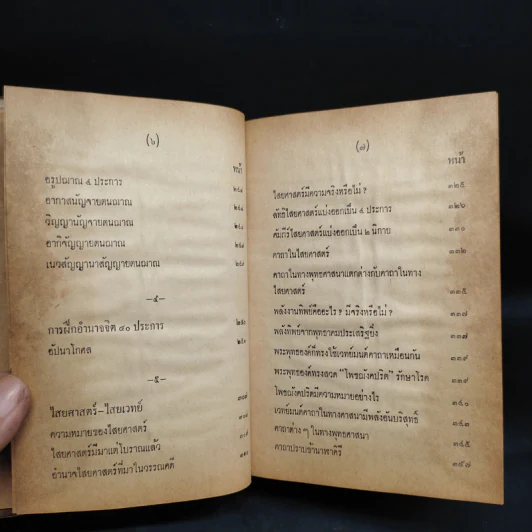 (๖)
หน้า
อรูปฌาณ ๔ ประการ
อากาสนัญจายตนฌาณ
วิญญานัญจายตนฌาณ
อากิจัญญายตนฌาณ
เนวสัญญานาสัญญายตนฌาณ
—๔—
การฝึกอำนาจจิต ๑๐ ประการ
อัปนาโกศล
—๕—
ไสยศาสตร์-ไสยเวทย์
ความหมายของไสยศาสตร์
ไสยศาสตร์มีมาแต่โบราณแล้ว
อำนาจไสยศาสตร์ที่มาในวรรณคดี
(๗)
หน้า
ไสยศาสตร์มีความจริงหรือไม่ ? ๓๒๕
ลัทธิไสยศาสตร์แบ่งออกเป็น ๔ ประการ ๓๒๖
คัมภีร์ไสยศาสตร์แบ่งออกเป็น ๒ นิกาย ๓๓๑
คาถาในไสยศาสตร์ ๓๓๒
คาถาในทางพุทธศาสนาแตกต่างกับคาถาในทาง
ไสยศาสตร์ ๓๓๕
พลังงานทิพย์คืออะไร ? มีจริงหรือไม่ ? ๓๓๗
พลังทิพย์จากพุทธาคมประเสริฐยิ่ง
พระพุทธองค์ก็ทรงใช้เวทย์มนต์คาถาเหมือนกัน
พระพุทธองค์ทรงสวด "โพชฌังคปริต" รักษาโรค ๓๓๙
โพชฌังคปริตมีความหมายอย่างไร
เวทย์มนต์คาถาในทางศาสนามีพลังอันบริสุทธิ์
คาถาต่าง ๆ ในทางพุทธศาสนา ๓๔๕
คาถาปราบช้านาพาคีรี